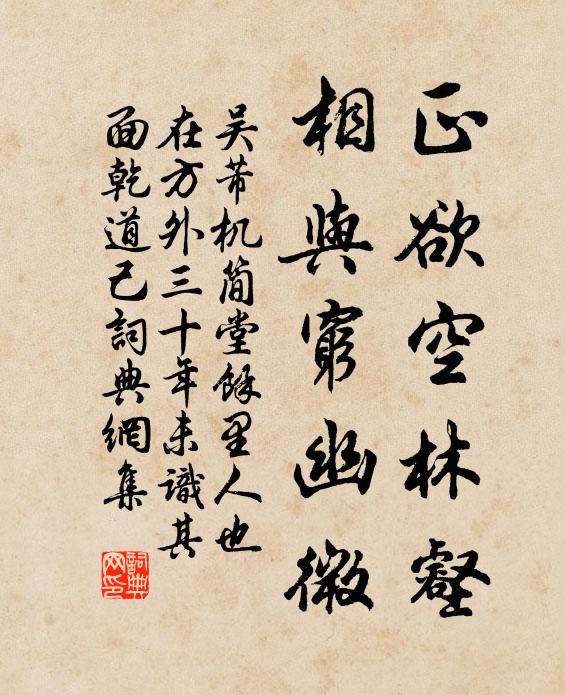 正欲空林壑
相與窮幽微
吴芾机简堂餘里人也
在方外三十年未識其
面乾道己詞典網集
詞典
网印